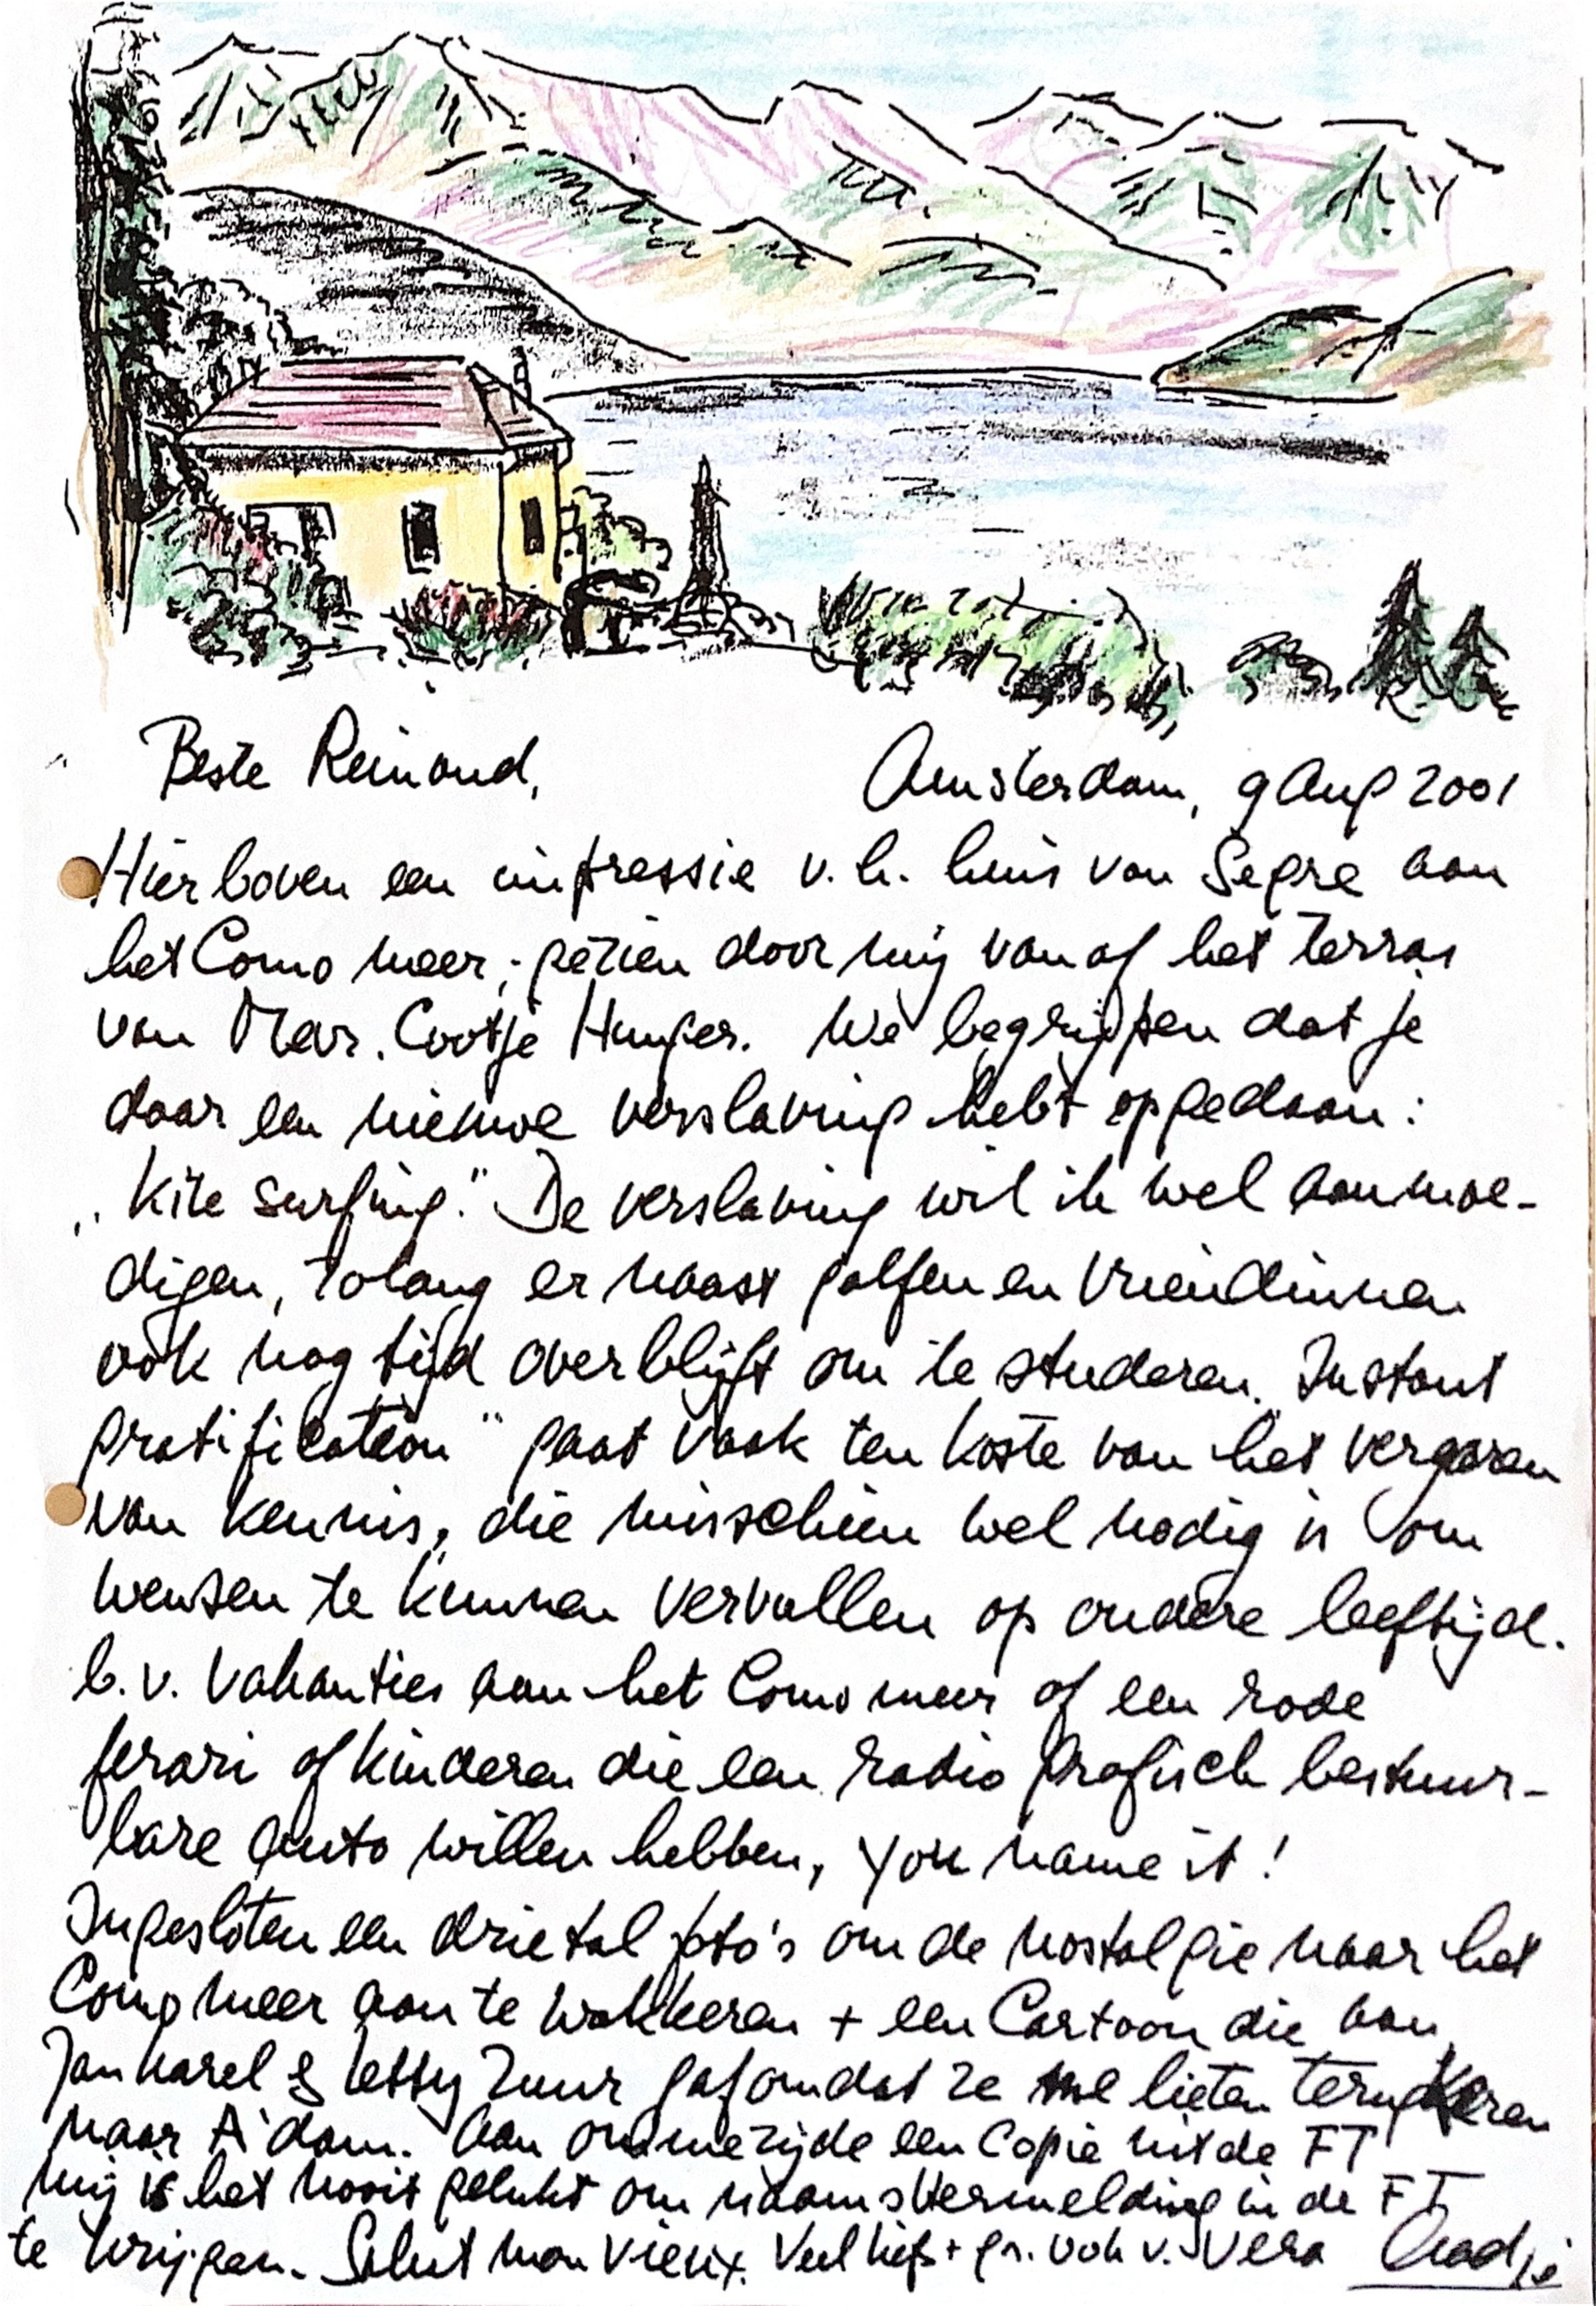 Beste Reinoud,
Amsterdam, 9 Aug 2001
Hierboven een impressie v.h. huis van Segre aan
het Como meer, gezien door mij vanaf het terras
van Mar. Cootje Hunfer. We begrijpen dat je
daar een nieuwe verslaving hebt opgedaan:
„Kite surfing." De verslaving wil ik wel aanmoe-
digen, zolang er naast golfen en vriendinnen
ook nog tijd overblijft om te studeren. „Instant
gratification" gaat vaak ten koste van het vergaren
van kennis, die misschien wel nodig is om
wensen te kunnen vervullen op oudere leeftijd.
b.v. vakanties aan het Como meer of een rode
ferari of kinderen die een radiografisch bestuur-
bare auto willen hebben, you name it!
Ingesloten een drietal foto's om de nostalgie naar het
Como meer aan te wakkeren + een Cartoon die aan
Jan Karel & Letty Zuur gaf omdat ze me lieten terugkeren
naar A'dam. Aan ommezijde een Copie uit de FT
mij is het nooit gelukt om naamsvermelding in de FT
te krijgen. Salut mon vieux. Veel liefs + gr. ook v. Vera